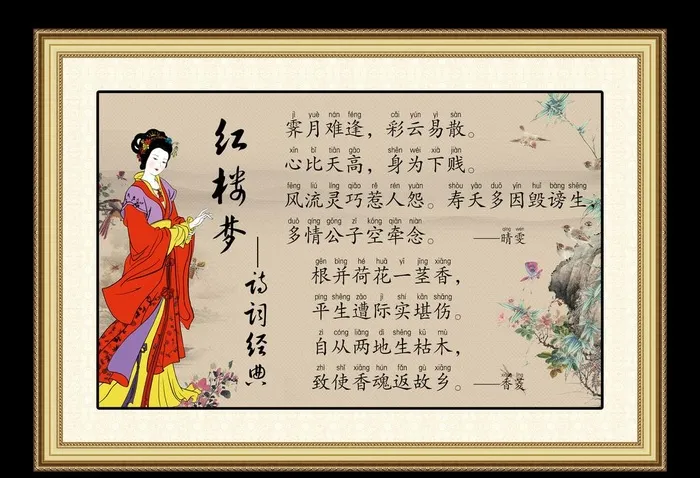 红楼梦
——诗词经典
jì yuè nán féng cǎi yún yì sàn
霁月难逢，彩云易散。
xīn bǐ tiān gāo shēn wéi xià jiàn
心比天高，身为下贱。
fēng liú líng qiǎo rě rén yuàn shòu yāo duō yīn huǐ bàng shēng
风流灵巧惹人怨。寿夭多因毁谤生，
duō qíng gōng zǐ kōng qiān niàn qíng wén
多情公子空牵念。——晴雯
gēn bìng hé huā yì jīng xiāng
根并荷花一茎香，
píng shēng zāo jì shí kān shāng
平生遭际实堪伤。
zì cóng liǎng dì shēng kū mù
自从两地生枯木，
zhì shǐ xiāng hún fǎn gù xiāng
致使香魂返故乡。——香菱